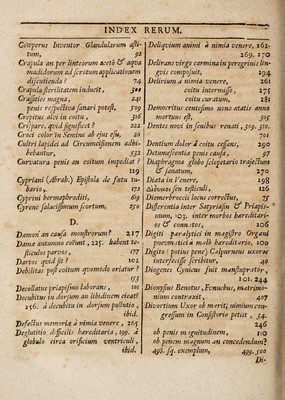 INDEX RERUM.
Cowperus Inventor Glandularum asti-
tum, 92
Crapula an per linteorum aceto & aqua
madidorum ad scrotum applicationem
discutienda? 74
Crapula sterilitatem inducit, 300
Crassities magna, 241
penis respectiva sanari potest, 509
Crepitus alvi in coitu, 316
Crispare, quid significet? 222
Croci color in Semine ab ejus esu, 28
Cultri lapidei ad Circumcisionem adhi-
bebantur, 532
Curvatura penis an coitum impediat?
119
Cypriani (Abrah.) Epistola de fœtu tu-
bario, 172
Cyprini hermaphroditi, 69
Cyrene salacissimum scortum, 250
D.
Dæmon an causa monstrorum? 217
Dama autumno coëunt, 225. habent te-
sticulos parvos, 177
Dartos quid sit? 102
Debilitas post coitum quomodo oriatur?
113
Decollatus priapismo laborans, 101
Decubitus in dorsum an libidinem cieat?
256. à decubitu in dorsum pollutio,
ibid.
Defectus memoria à nimia venere, 265
Deglutitio difficilis hereditaria, 199. à
globulo circa orificium ventriculi,
ibid.
Deliquium animi à nimia venere, 262.
269. 270
Delirans virgo carmina in peregrinis lin-
gvis composuit, 194
Delirium à nimia venere, 261
coitu intermisso, 275
coitu curatum, 281
Democritus centesimo nono ætatis anno
mortuus est, 305
Dentes novi in senibus renati, 309. 310.
701
Dentium dolor à coitu cessans, 290
Detumescentia penis causa, 97
Diaphragma globo sclopetario trajectum
& sanatum, 270
Diæta in Venere, 198
Δίδυμοι seu testiculi, 126
Diemerbroecii locus correctus, 75
Differentia inter Satyriasin & Priapis-
mum, 103. inter morbos hereditari-
os & connatos, 106
Digiti paralytici in magistro Organi
pneumatici à malo hereditario, 200
Digito (potius pene) Calpurnius uxores
interfecisse scribitur, 40
Diogenes Cynicus fuit manstuprator,
101. 244
Dionysius Benotus, Eunuchus, matrimo-
nium contraxit, 407
Divortium Uxor ob mariti nimium con-
gressum in Consistorio petiit, 34.
246
ob penis magnitudinem, 110
ob penem magnum an concedendum?
498. sq. exemplum, 499. 500
Di-